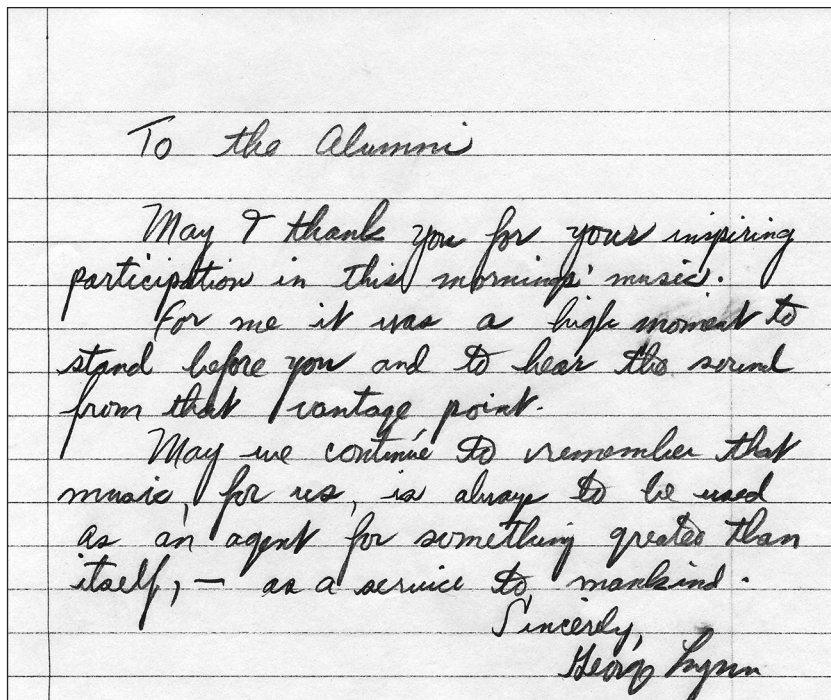 To the Alumni
May I thank you for your inspiring
participation in this mornings' music.
For me it was a high moment to
stand before you and to hear the sound
from that vantage point.
May we continue to remember that
music, for us, is always to be used
as an agent for something greater than
itself, — as a service to mankind.
Sincerely,
George Lynn